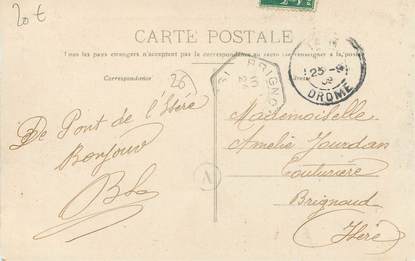 20 €
CARTE POSTALE
Tous les pays étrangers n'acceptent pas la correspondance au recto
Correspondance
26
De Pont de l'Isère
Bonjour
BRIGNO
25-9
DROME
1
Mademoiselle
Amelie Jourdan
Couturière
Brignoud
Isère